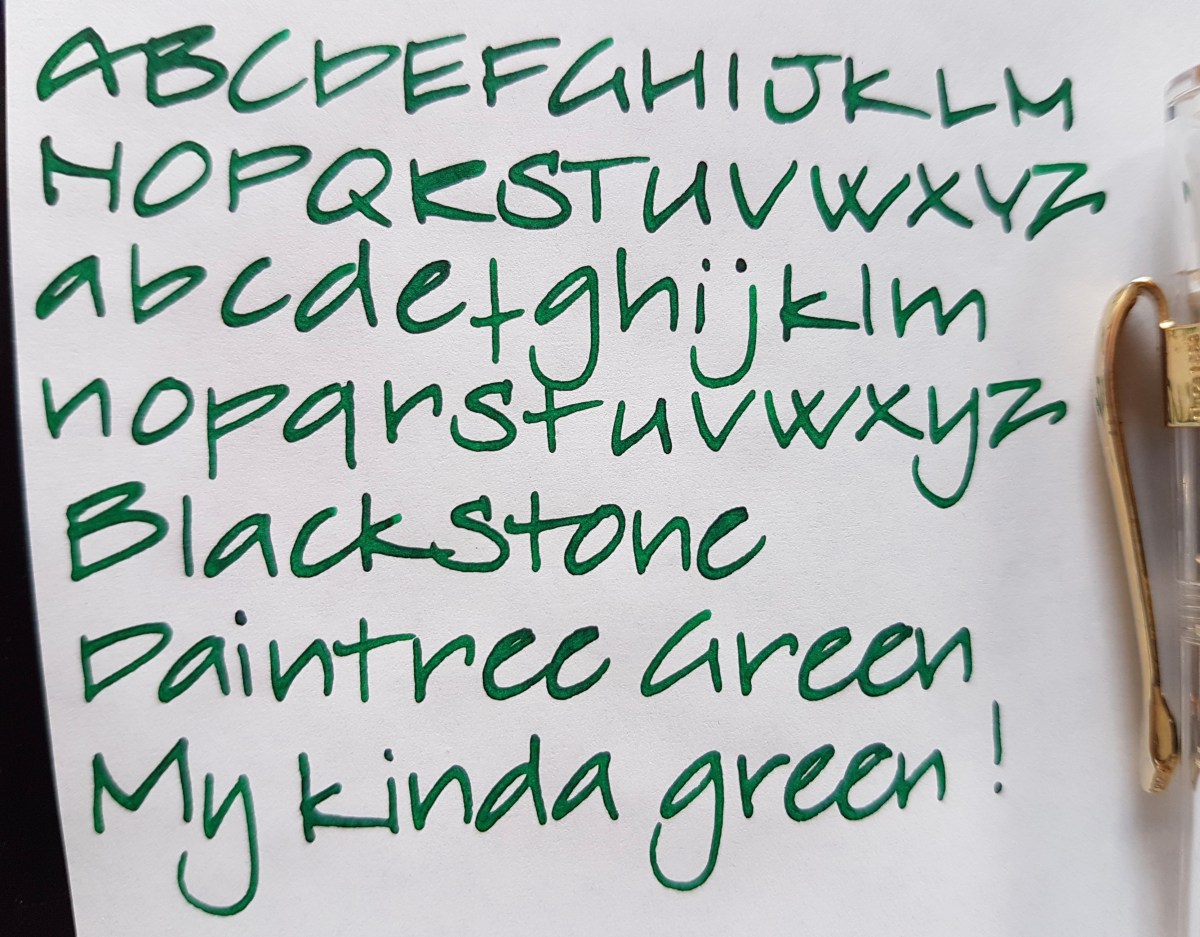 ABCDEFGHIJKLM
NOPQRSTUVWXYZ
abcdefghijklm
nopqrstuvwxyz
Blackstone
Daintree Green
My kinda green!